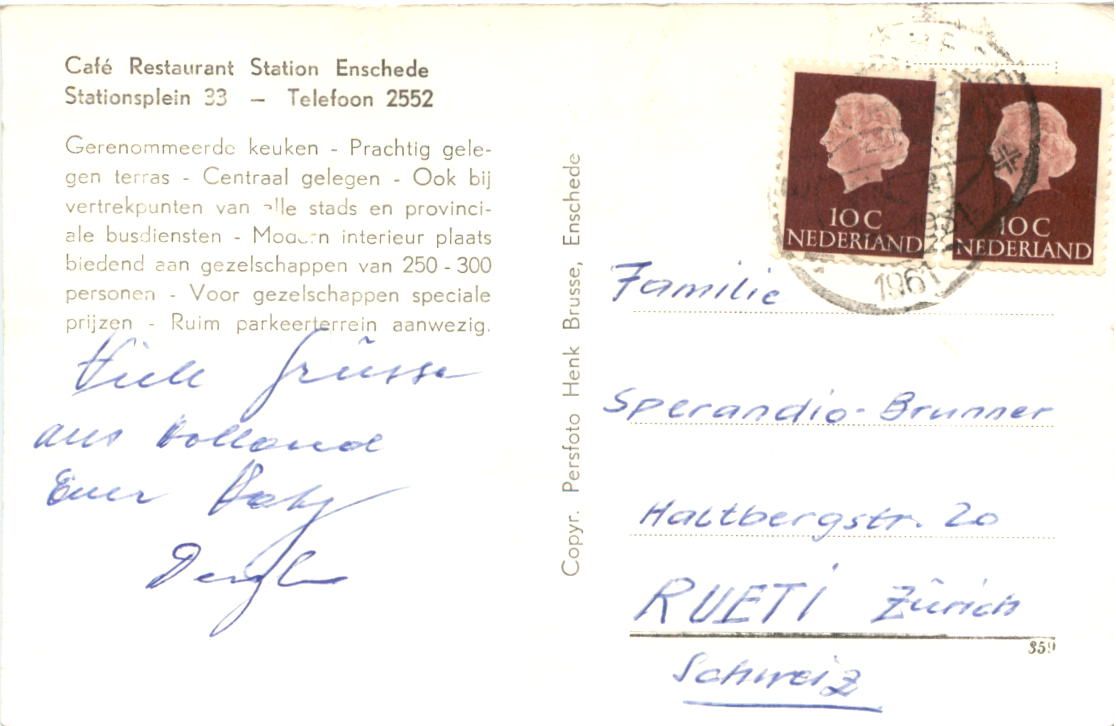 Café Restaurant Station Enschede
Stationsplein 33 – Telefoon 2552
Gerenommeerde keuken - Prachtig gele-
gen terras - Centraal gelegen - Ook bij
vertrekpunten van alle stads en provinci-
ale busdiensten - Modern interieur plaats
biedend aan gezelschappen van 250 - 300
personen - Voor gezelschappen speciale
prijzen - Ruim parkeerterrein aanwezig.
Viele Grüsse
aus Holland
Euer
Copyr. Persfoto Henk Brusse, Enschede
10 C
NEDERLAND
10 C
NEDERLAND
1961
Familie
Sperandio-Brunner
Haltbergstr. 20
RUETI Zürich
Schweiz
359